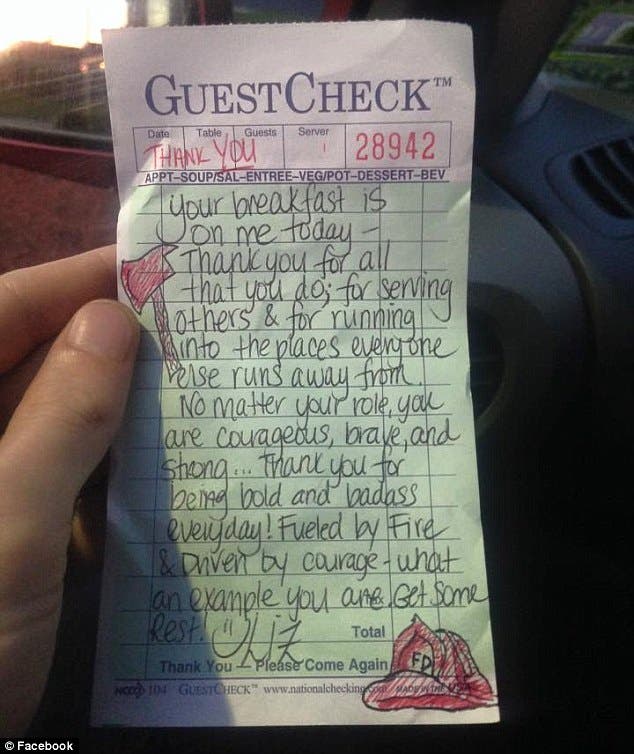 GUESTCHECK™
Date Table Guests Server
THANK YOU 28942
APPT-SOUP/SAL-ENTREE-VEG/POT-DESSERT-BEV
Your breakfast is
on me today -
Thank you for all
that you do; for serving
others & for running
into the places everyone
else runs away from.
No matter your role, you
are courageous, brave, and
strong... Thank you for
being bold and badass
everyday! Fueled by Fire
& Driven by courage - what
an example you are. Get some
Rest! Liz
Total
FD
Thank You – Please Come Again
104 GUESTCHECK™ www.nationalchecking MADE IN THE USA
© Facebook